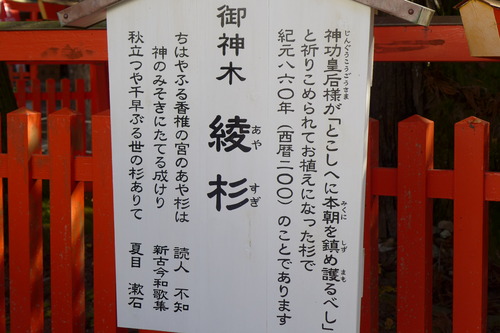 神功皇后様が「とこしへに本朝を鎮め護るべし」
と祈りこめられてお植えになった杉で
紀元八六〇年（西暦二〇〇）のことであります
御神木 綾杉
ちはやふる香椎の宮のあや杉は
神のみそきにたてる成けり
読人 不知
新古今和歌集
秋立つや千早ぶる世の杉ありて
夏目 漱石